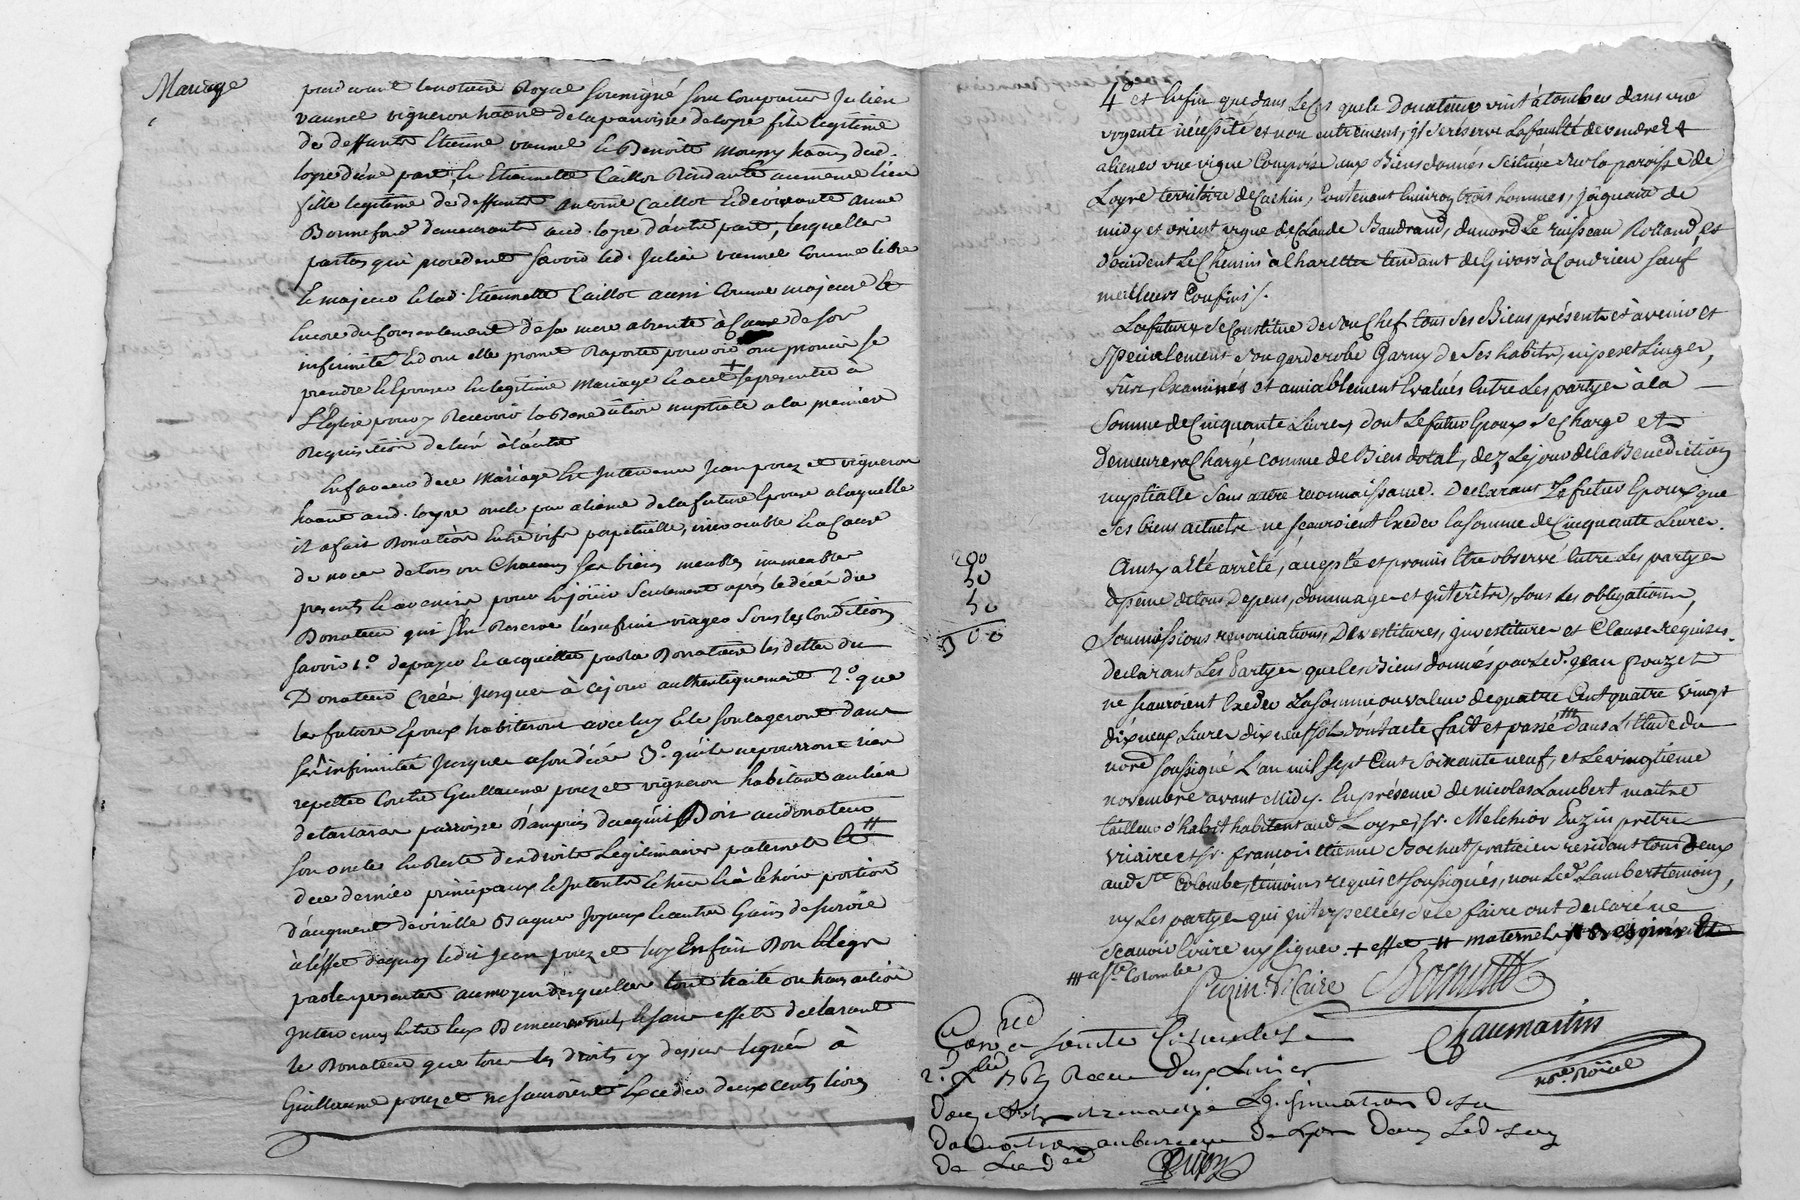 Mariage
pardevant le notaire Royal soussigné sont comparus Julien
vaunel vigneron habitant de la parroisse de loyre fils legitime
de deffunts Etienne vaunel et Benoite moussy habitans dud.
loyre d'une part, et Etiennette Caillot Residante au meme lieu
fille legitime de deffunt antoine Caillot et de vivante anne
Bonnefond demeurante aud. loyre d'autre part, lesquelles
parties qui procedent savoir led. Julien vaunel comme libre
et majeur et lad. Etiennette Caillot aussi comme majeure et
encore du consentement de sa mere absente à cause de son
infirmité et dont elle promet raporter pouvoir ont promis se
prendre et Epouser en legitime mariage et a cet + se presenter à
l'Eglise pour y Recevoir la Benediction nuptiale a la premiere
Requisition de l'un à l'autre
En faveur de ce mariage est intervenu jean pouzet vigneron
habitant aud. loyre oncle de la future Epouse a laquelle
il a fait Donation entre vifs perpetuelle, irrevocable et a cause
de noces de tous un chacuns ses biens meubles immeubles
presents et avenir pour en jouir seulement après le decès du
Donateur qui s'en Reserve l'usufruit viager sous les conditions
savoir 1.° de payer et acquitter par la Donataire les dettes du
Donateur Créés jusques à ce jour authentiquement 2.° que
les futurs Epoux habiteront avec luy et le soulageront dans
ses infirmités jusques a son décès 3.° qu'ils ne pourront rien
repetter contre Guillaume pouzet vigneron habitant au lieu
de tartaras parroisse
son oncle en Reste de droits legitimaires paternels et #
de ce dernier principaux et interets
d'augment de virille Bagues joyaux et autres Gains de survie
à l'effet de quoy ledit jean pouzet
par les presentes au moyen desquelles tout traité ou transaction
intervenus entre eux demeureront sans effets declarant
le Donateur que tous les droits cy dessus legués à
Guillaume pouzet ne sauroient Exceder deux cents livres
4.° et Enfin que dans le cas que le Donateur vint à tomber dans une
urgente nécessité et non autrement, il se réserve la faculté de vendre et
aliener une vigne Comprise aux Biens donnés scituée sur la paroisse de
Loyre territoire de Cachin, Contenant Environ trois hommes, joignant de
midy et orient vigne de Claude Baudrand, du nord Le ruisseau Rolland, et
d'occident Le Chemin à Charette tendant de Givors à Condrieu sauf
meilleurs Confins /.
La future se Constitue de son Chef tous ses Biens présents et avenir et
spécialement son garderobe Garny de ses habits, nipes et Linges,
vûs, Examinés et amiablement Evalués Entre Les partyes à la
Somme de Cinquante Livres, dont Le futur Epoux se Charge et
Demeurera Chargé comme de Bien dotal, dez Le jour de la Benediction
nuptialle sans autre reconnaissance. Declarant Le futur Epoux que
ses biens actuels ne sçauroient Exceder la somme de Cinquante Livres.
200
50
50
300
Ainsy a Eté arrêté, accepté et promis Etre observé Entre Les partyes
a peine de tous Depens, dommages et interêts, sous Les obligations,
Soumissions renonciations, Devestitures, investitures et Clauses requises.
declarant Les Partyes que les Biens donnés par Led. jean Pouzet
ne sçauroient Exceder La somme ou valeur de quatre Cent quatre vingt
dix neuf Livres dix neuf sols dont acte fait et passé ### dans L'Etude du
nore soussigné L'an mil sept Cent soixante neuf, et Le vingtieme
novembre avant Midy. En présence de nicolas Lambert maitre
tailleur d'habit habitant aud Loyre, sr. Melchior Puzin prêtre
vicaire et sr. francois Etienne Bochat praticien residant tous deux
aud Ste Colombe, temoins requis et soussignés, non Led. Lambert temoin,
ny Les partyes qui interpellées de Le faire ont declaré ne
scavoir Ecrire ny signer. + effet # maternels
### a ste Colombe
Puzin Vicaire
Chaumartin
nore Roïal
Con. à sainte Colombe Le
Reçu Deux Livres
donation au bureau de Lyon dans Le delay